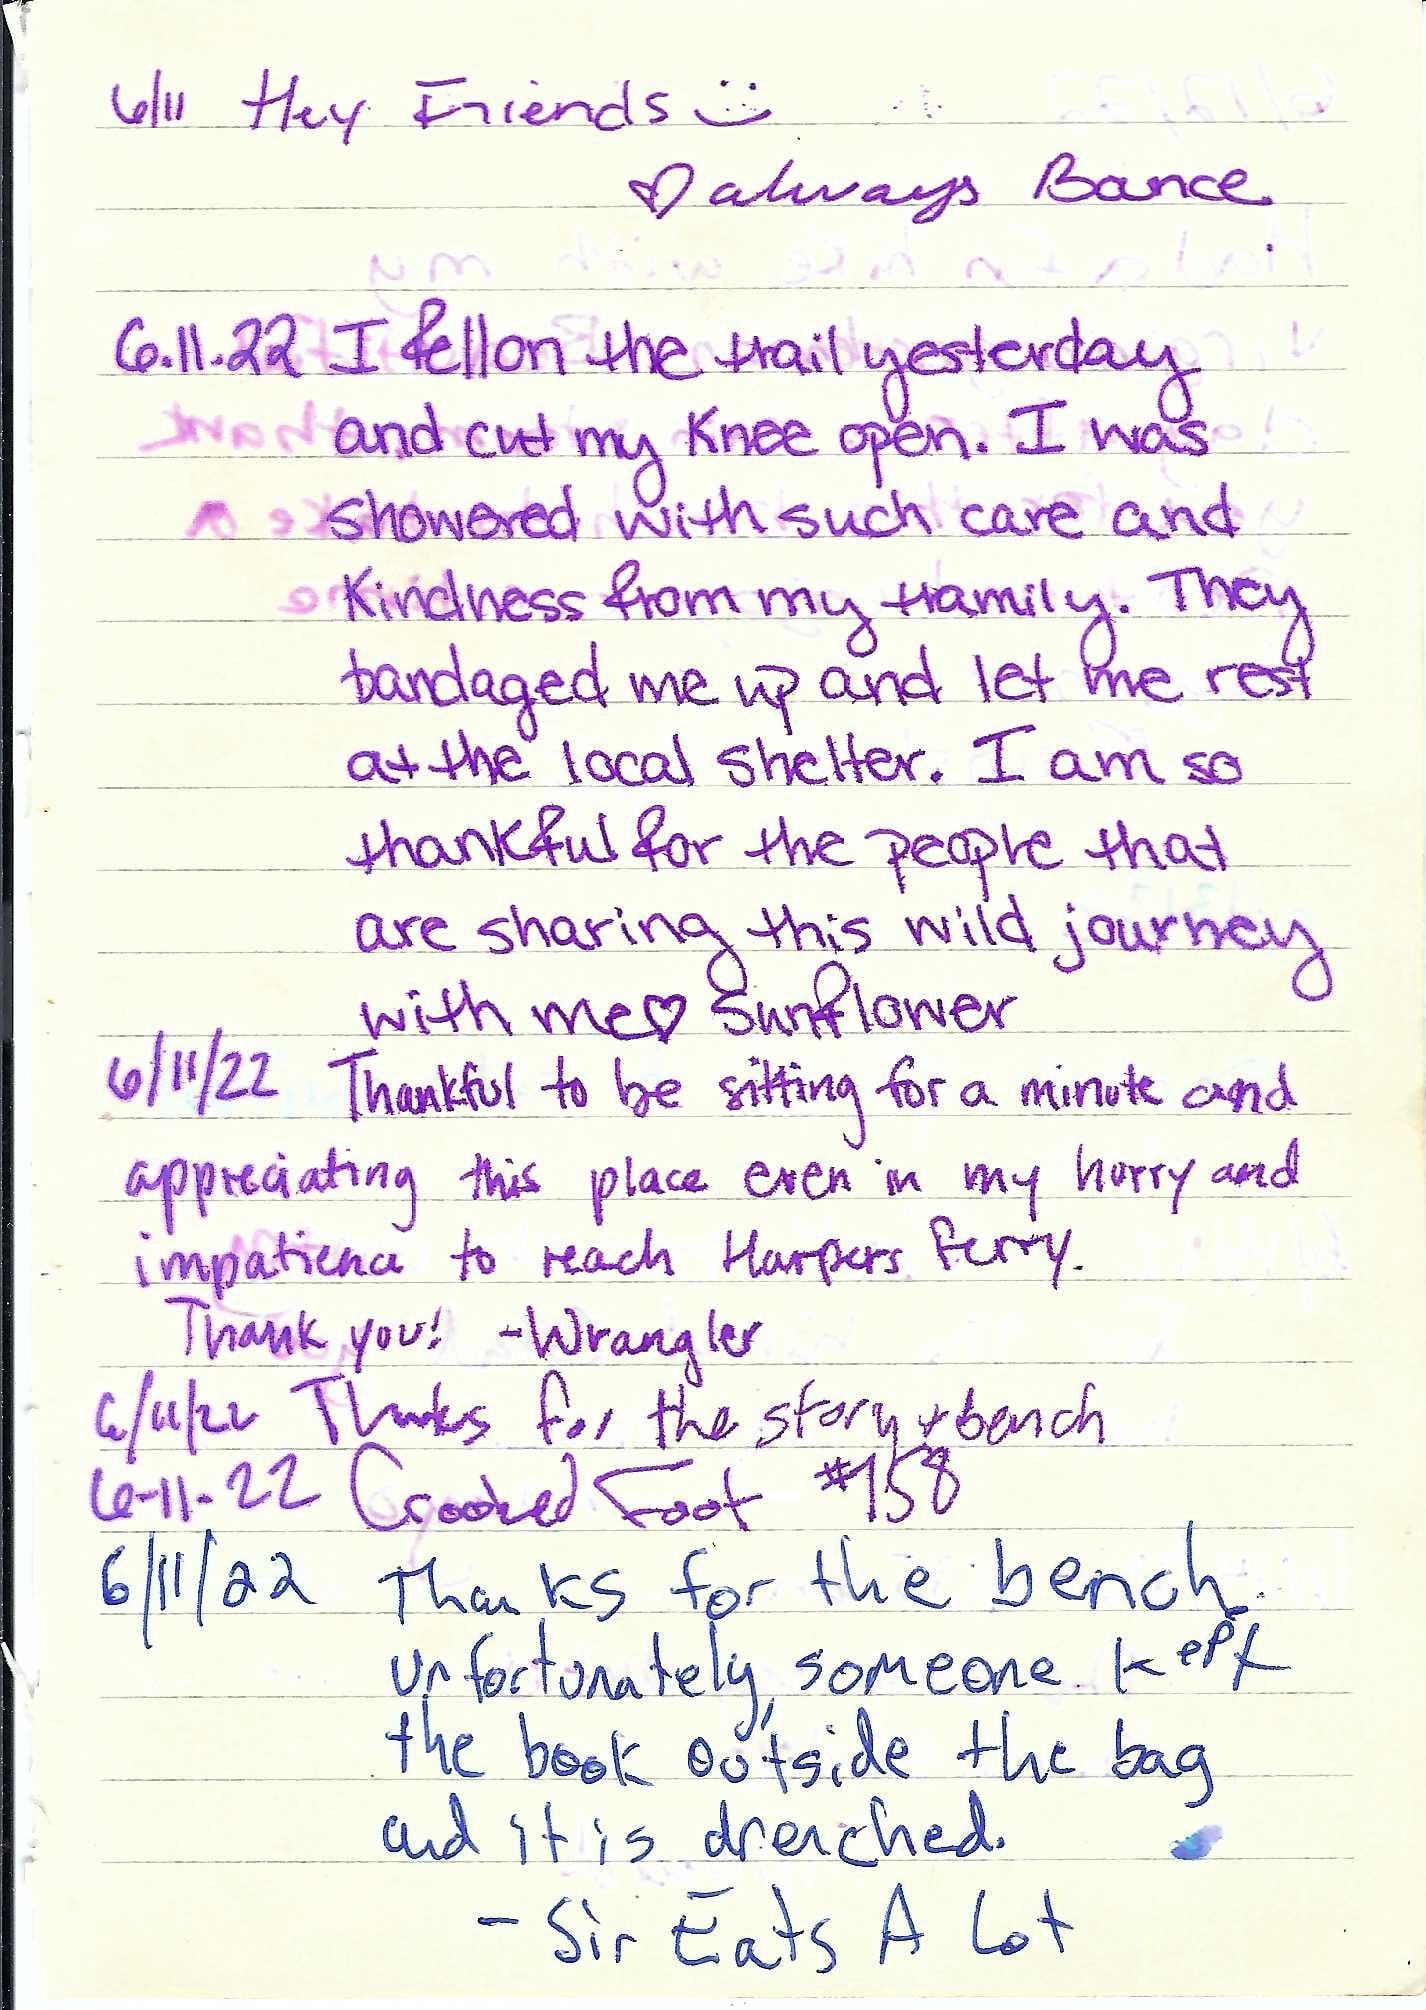 6/11 Hey Friends
♡ always Bance.
6.11.22 I fell on the trail yesterday
and cut my knee open. I was
showered with such care and
kindness from my tramily. They
bandaged me up and let me rest
at the local shelter. I am so
thankful for the people that
are sharing this wild journey
with me ♡ Sunflower
6/11/22 Thankful to be sitting for a minute and
appreciating this place even in my hurry and
impatience to reach Harpers Ferry.
Thank you! -Wrangler
6/11/22 Thanks for the story + bench
6-11-22 Crooked Foot #158
6/11/22 Thanks for the bench.
Unfortunately, someone kept
the book outside the bag
and it is drenched.
- Sir Eats A Lot